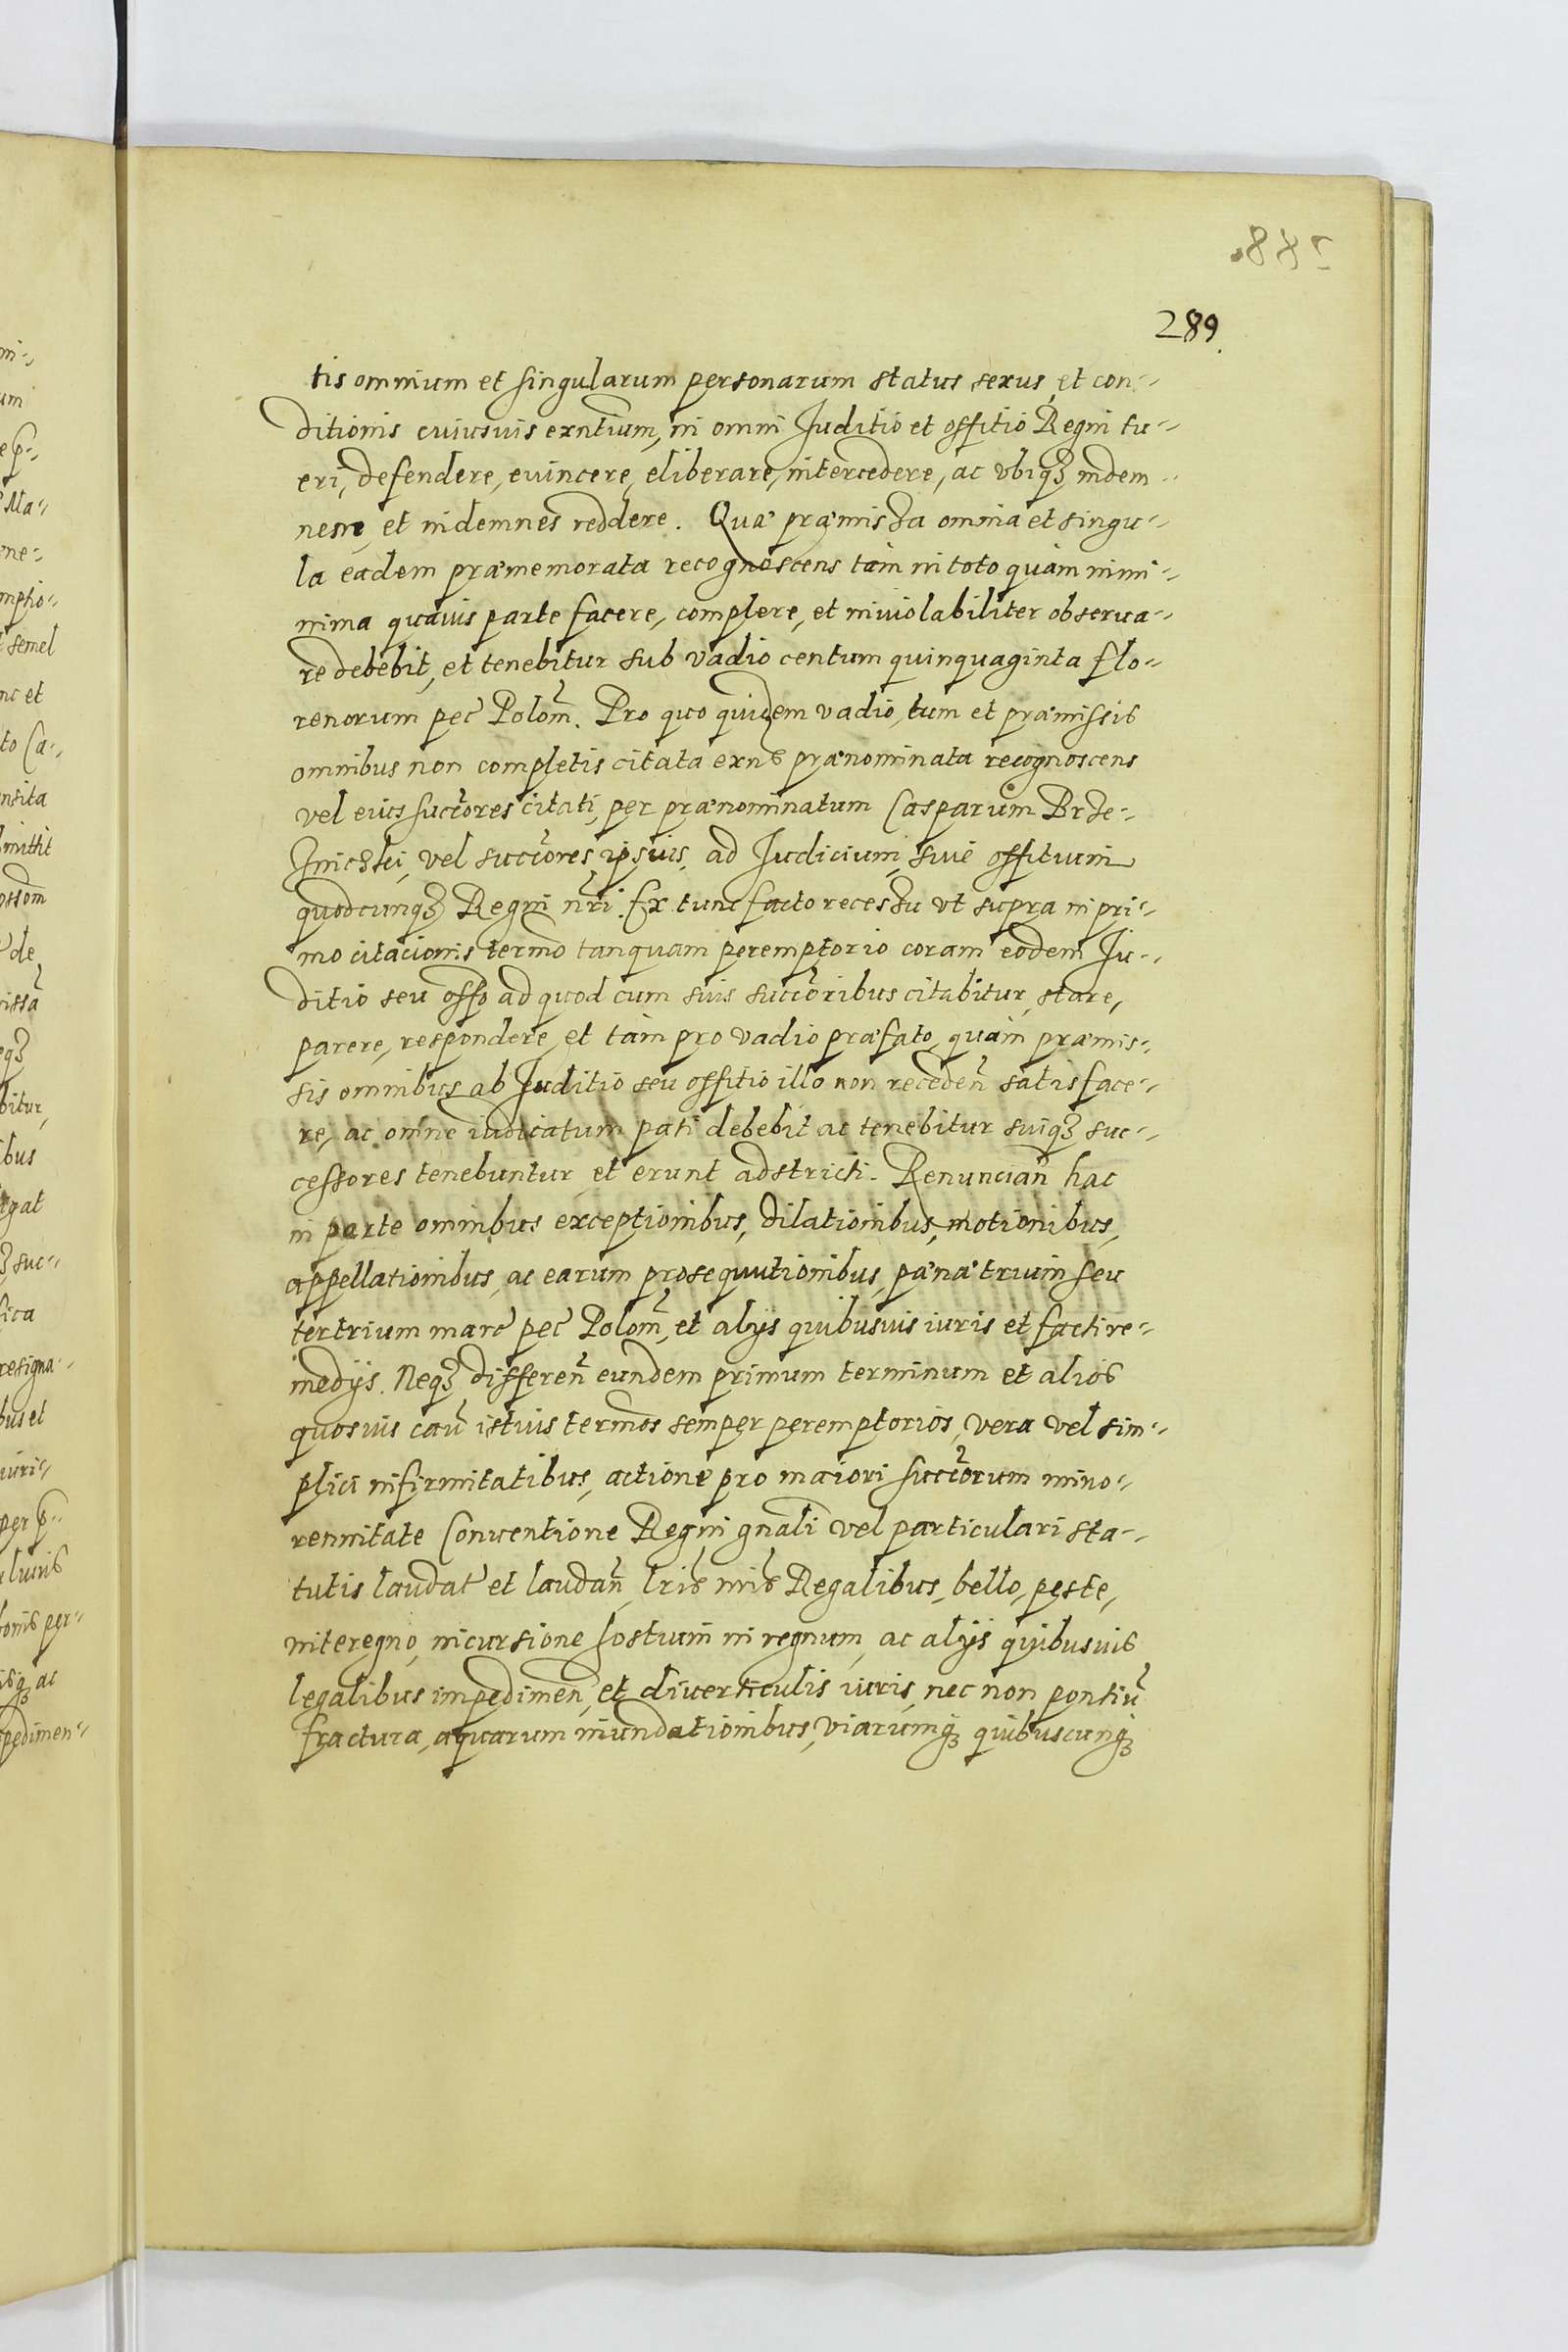 289.
tis omnium et singularum personarum status sexus, et con-
ditionis cuiusuis exntium, in omni Juditio et offitio Regni tu-
eri, defendere, euincere, eliberare, intercedere, ac vbiqȝ indem-
nem, et indemnes reddere. Quæ præmissa omnia et singu-
la eadem præmemorata recognoscens tàm in toto quàm mini-
nima quauis parte facere, complere, et inuiolabiliter obserua-
re debebit, et tenebitur sub vadio centum quinquaginta flo-
renorum pec Polom̃. Pro quo quidem vadio, tum et præmissis
omnibus non completis citata exns prænominata recognoscens
vel eius succores citati, per prænominatum Casparum Brze-
vel succores ipsius, ad Judicium, siue offitium
quodcunqȝ Regni nr̃i. Ex tunc facto recessu vt supra in pri-
mo citacionis termo tanquam peremptorio coram eodem Ju-
ditio seu offo ad quod cum suis succoribus citabitur, stare,
parere, respondere, et tàm pro vadio præfato, quàm præmis-
sis omnibus ab Juditio seu offitio illo non receden̄ satisface-
re, ac omne iudicatum pati debebit ac tenebitur suiqȝ suc-
cessores tenebuntur et erunt adstricti. Renuncian̄ hac
in parte omnibus exceptionibus, dilationibus, motionibus,
appellationibus, ac earum prosequutionibus, pænæ trium seu
ter trium marc pec Polom̃, et alijs quibusuis iuris et facti re-
medijs. Neqȝ differen̄ eundem primum terminum et alios
quosuis cau istius termos semper peremptorios, vera vel sim-
plici infirmitatibus, actione pro maiori succorum mino-
rennitate Conuentione Regni gnali vel particulari sta-
tutis laudat et laudan̄, lris mis Regalibus, bello, peste,
interegno, incursione hostium in regnum, ac alijs quibusuis
legalibus impedimen̄, et diuerticulis iuris, nec non pontiū
fractura, aquarum inundationibus, viarumqȝ quibuscunqȝ